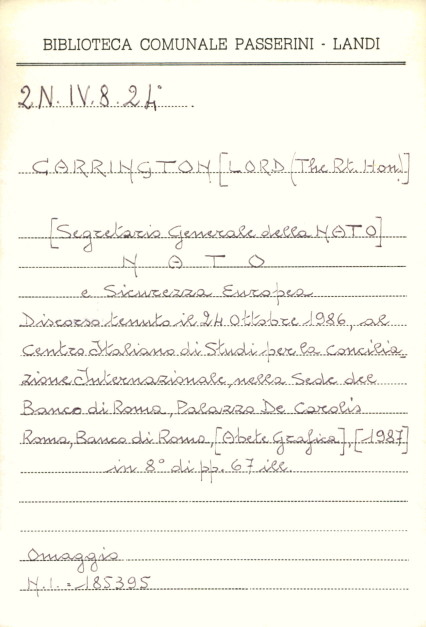 BIBLIOTECA COMUNALE PASSERINI - LANDI
2N.IV.8.24°
CARRINGTON [LORD (The Rt. Hon.)]
[Segretario Generale della NATO]
N A T O
e Sicurezza Europea
Discorso tenuto il 24 Ottobre 1986, al
Centro Italiano di Studi per la Concilia=
zione Internazionale, nella Sede del
Banco di Roma, Palazzo De Carolis
Roma, Banco di Roma, [Abete Grafica], [1987]
in 8° di pp. 67 ill.
Omaggio
N.I. = 185395